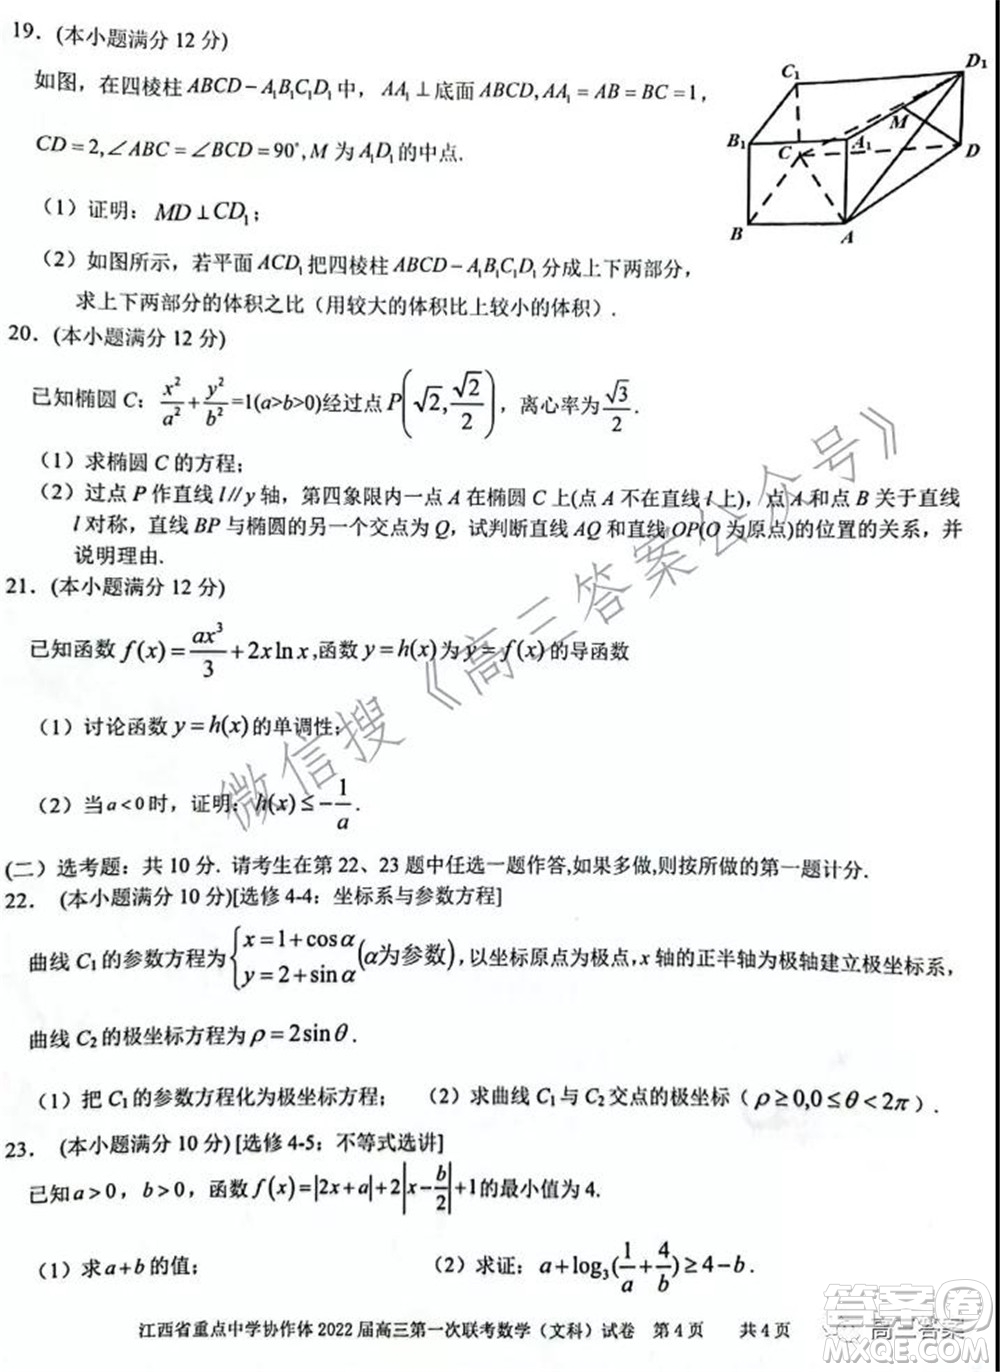 19. (本小题满分 12 分)
如图，在四棱柱 ABCD－A₁B₁C₁D₁ 中， AA₁⊥底面 ABCD, AA₁=AB=BC=1，
CD=2,∠ABC=∠BCD=90°, M 为 A₁D₁ 的中点.
（1）证明： MD⊥CD₁；
（2）如图所示，若平面 ACD₁ 把四棱柱 ABCD－A₁B₁C₁D₁ 分成上下两部分，
求上下两部分的体积之比（用较大的体积比上较小的体积）.
C₁
D₁
B₁
C
A₁
M
D
B
A
20. (本小题满分 12 分)
已知椭圆 C： x²/a² + y²/b² =1(a>b>0)经过点 P(√2, √2/2)，离心率为 √3/2 .
（1）求椭圆 C 的方程；
（2）过点 P 作直线 l // y 轴，第四象限内一点 A 在椭圆 C 上(点 A 不在直线 l 上)，点 A 和点 B 关于直线
l 对称，直线 BP 与椭圆的另一个交点为 Q，试判断直线 AQ 和直线 OP(O 为原点)的位置的关系，并
说明理由.
21. (本小题满分 12 分)
已知函数 f(x)= ax³/3 +2x ln x,函数 y=h(x)为 y=f(x)的导函数
（1）讨论函数 y=h(x)的单调性；
（2）当 a<0 时，证明：h(x)≤－1/a .
(二）选考题：共 10 分. 请考生在第 22、23 题中任选一题作答,如果多做,则按所做的第一题计分.
22. (本小题满分 10 分)[选修 4-4：坐标系与参数方程]
曲线 C₁ 的参数方程为 {x=1+cosα y=2+sinα (α为参数)，以坐标原点为极点，x 轴的正半轴为极轴建立极坐标系，
曲线 C₂ 的极坐标方程为 ρ=2sinθ .
（1）把 C₁ 的参数方程化为极坐标方程； （2）求曲线 C₁ 与 C₂ 交点的极坐标（ρ≥0,0≤θ<2π）.
23. (本小题满分 10 分) [选修 4-5：不等式选讲]
已知 a>0，b>0，函数 f(x)=|2x+a|+2|x－b/2|+1 的最小值为 4.
（1）求 a+b 的值； （2）求证： a+log₃(1/a+4/b)≥4－b .
江西省重点中学协作体 2022 届高三第一次联考数学（文科）试卷 第 4 页 共 4 页
微信搜《高三答案公众号》
高三答案
答案圈
MXQE.COM